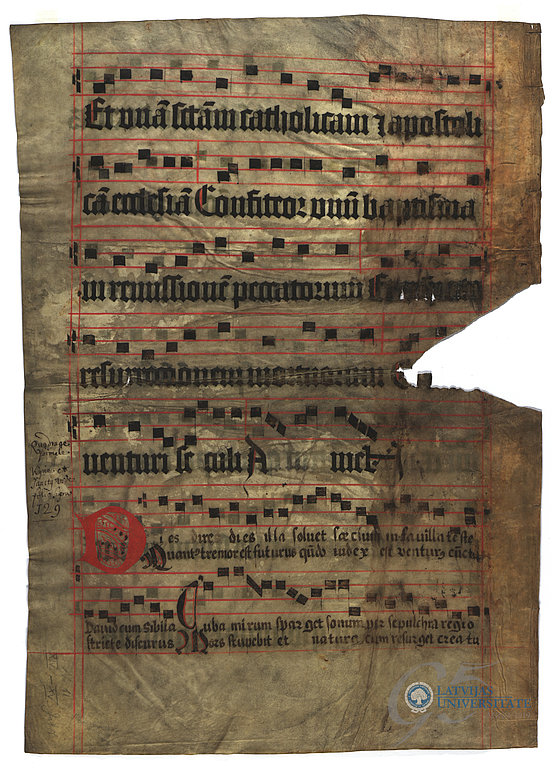 Et vnā sctām catholicam ⁊ apostoli
cā ecclesiā Confiteor vnū baptisma
in remissionē peccatorum
resurrectionem mortuorum
venturi se culi A me
Dies ire dies illa soluet sæclum in fauilla teste
Quantꝰ tremor est futurus qn̄do iudex est venturꝰ cūcta
Dauid cum Sibilla Tuba mirum sparget sonum per sepulchra regio
stricte discurus Mors stupebit et natura cum resurget creatu
129
LATVIJAS
UNIVERSITĀTE